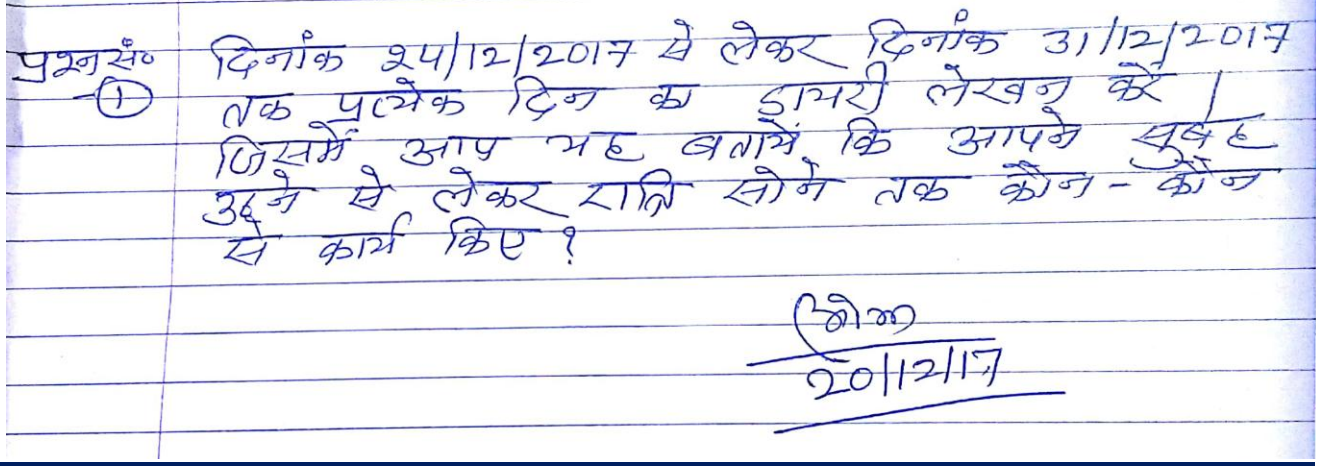 प्रश्न सं० दिनांक 24/12/2017 से लेकर दिनांक 31/12/2017
① तक प्रत्येक दिन का डायरी लेखन करें।
जिसमें आप यह बतायें कि आपने सुबह
उठने से लेकर रात्रि सोने तक कौन-कौन
से कार्य किए?
20/12/17